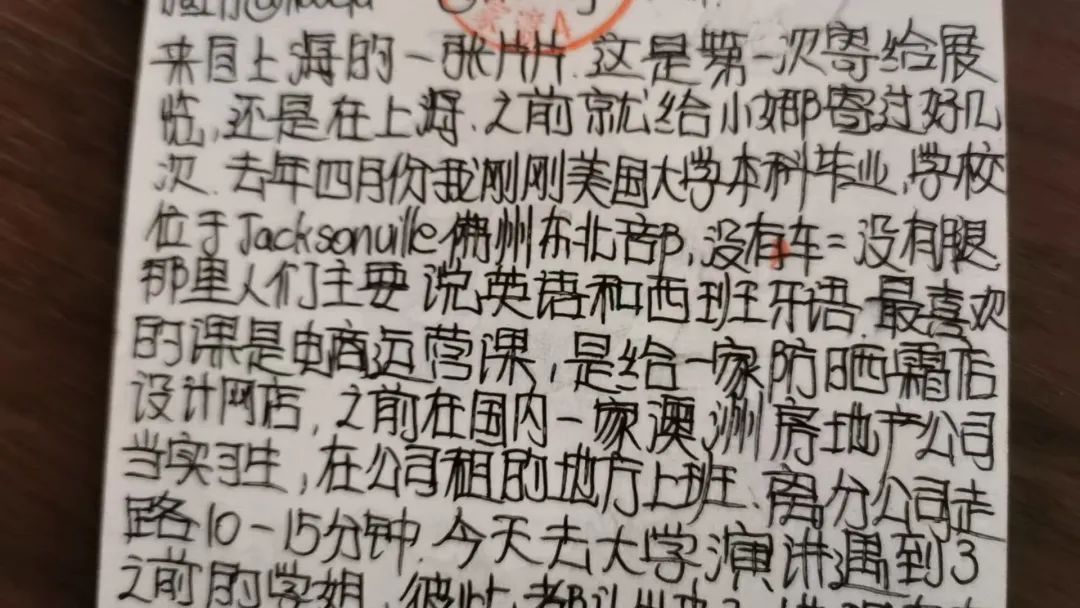 来自上海的一张片片.这是第一次寄给展
临,还是在上海.之前就给小娜寄过好几
次.去年四月份我刚刚美国大学本科毕业,学校
位于Jacksonville佛州东北部,没有车=没有腿.
那里人们主要说英语和西班牙语.最喜欢
的课是电商运营课,是给一家防晒霜店
设计网店,之前在国内一家澳洲房地产公司
当实习生,在公司租的地方上班.离分公司走
路10-15分钟.今天去大学演讲遇到3
之前的学姐,彼此都认出来了